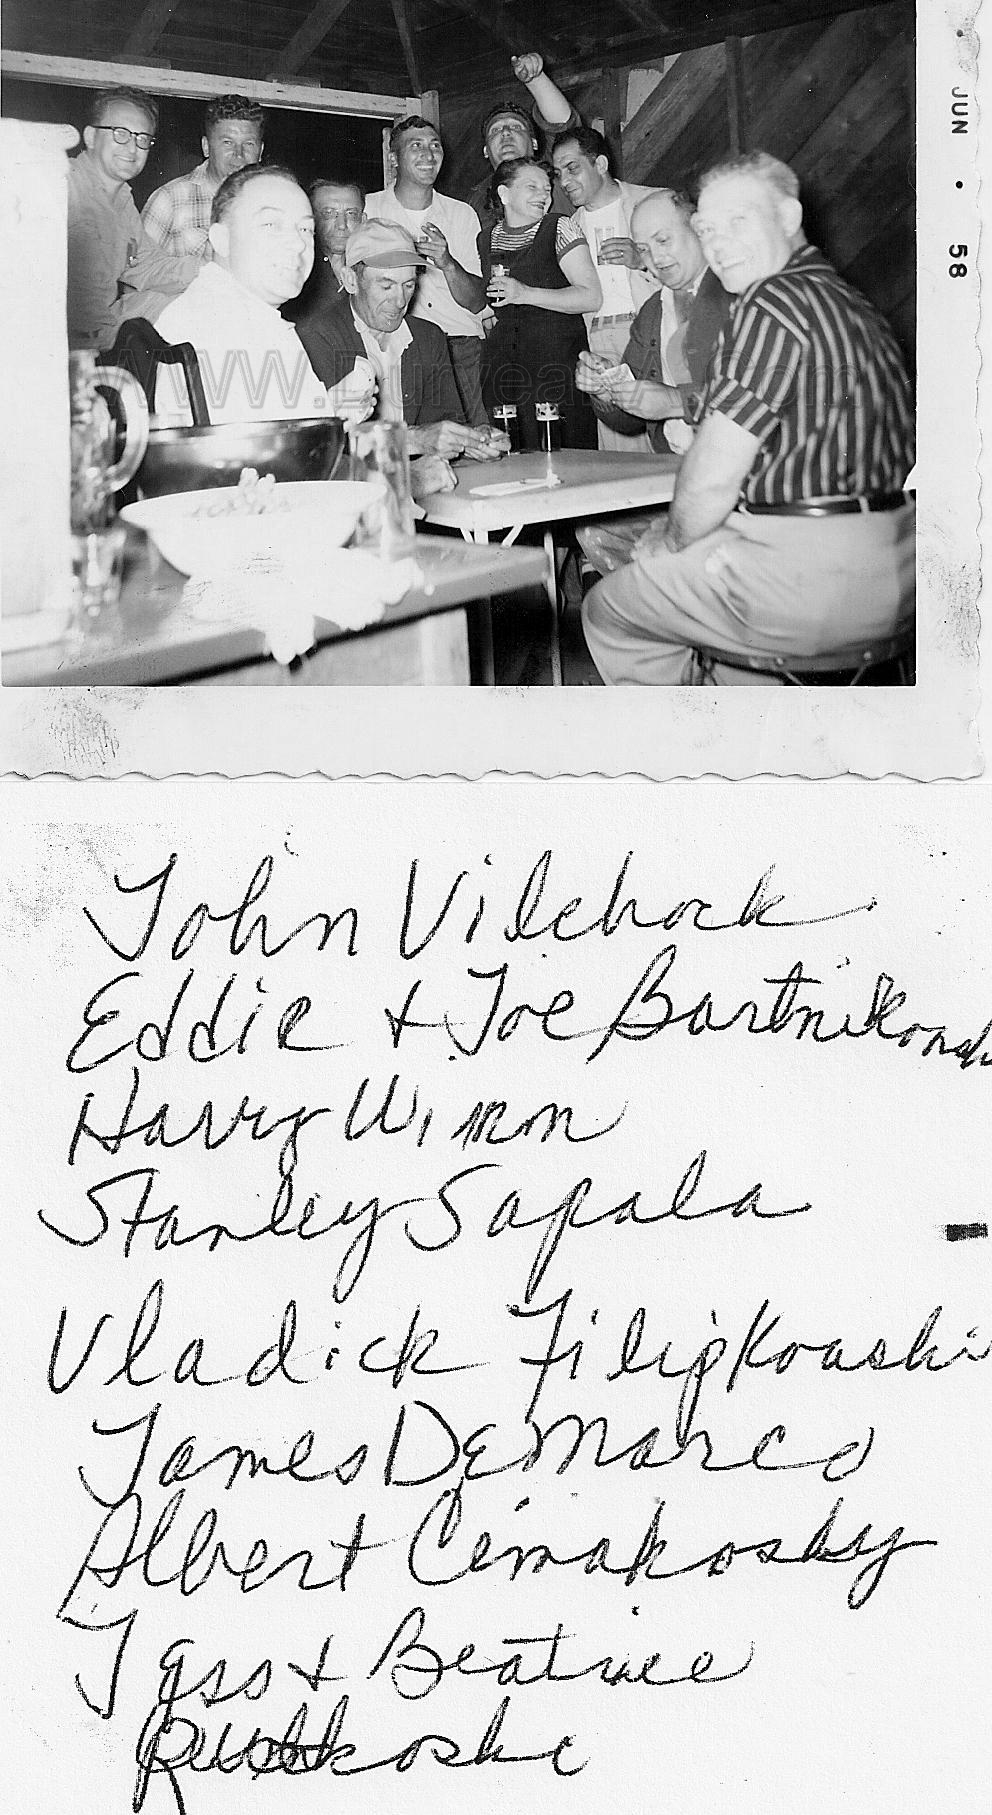 JUN • 58
WWW.DuryeaPA.com
John Vilchock
Eddie & Joe Bartnikowski
Harry Wimon
Stanley Sapala
Vladick Filipkowski
James DeMarco
Albert Cimakosky
Jess & Beatrice